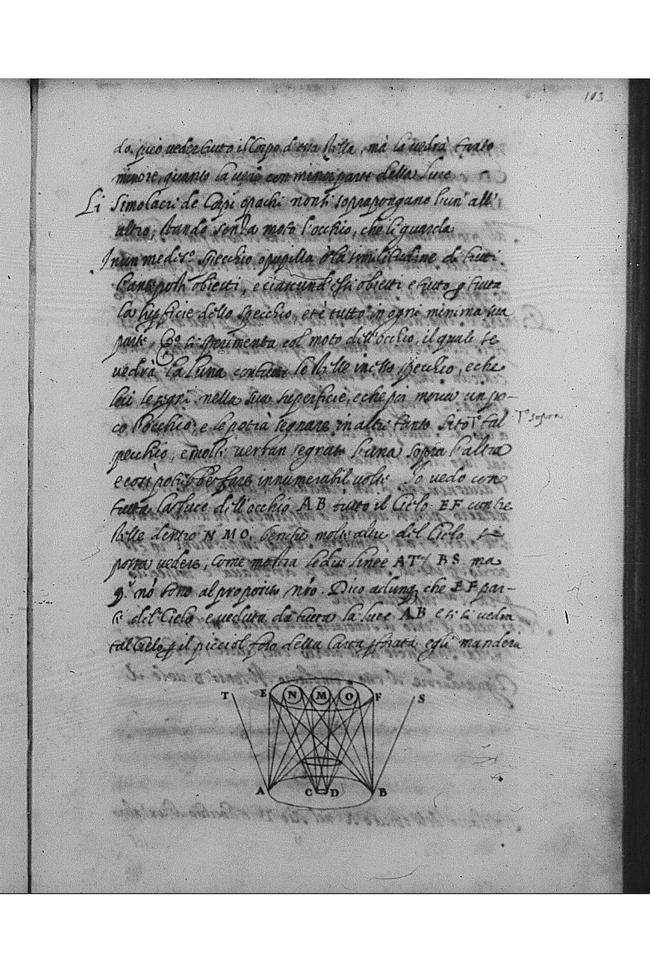 103
do, può veder tutto il Corpo d'essa stella, mà la vedrà tanto
minore, quanto la vede con minor parte della luce
Li Simolacri de Corpi opachi non si soprapongano l'un' all'
altro, stando senza moto l'occhio, che li guarda
In un med.o specchio o pupilla è la similitudine di tutti
l'antiposti obietti, e ciascun d'essi obietti è tutto p tutta
la supficie dello specchio, et è tutto in ogni minima sua
parte, si sperimenta col moto dell'occhio, il quale se
vedrà la luna con tutte le stelle in esso specchio, e che
lui le segni nella sua superficie, e che poi mova un po-
co l'occhio, e le potrà segnare in altro tanto sito T tal
T sopra
specchio, e molti verran segnati l'una sopra l'altra
e così potrebbe fare innumerabil volte. Io vedo con
tutta la luce dell'occhio AB tutto il Cielo EF con tre
stelle dentro NMO, benche molto altro del Cielo
possa vedere, come mostra le due linee AT / BS, ma
nõ sono al proposito nr̃o. Dico adunq, che EF par-
te del Cielo è veduta da tutta la luce AB e se si vedrà
tal Cielo p il picciol foro della Carta forata egli manderà
T E N M O F S
A C D B